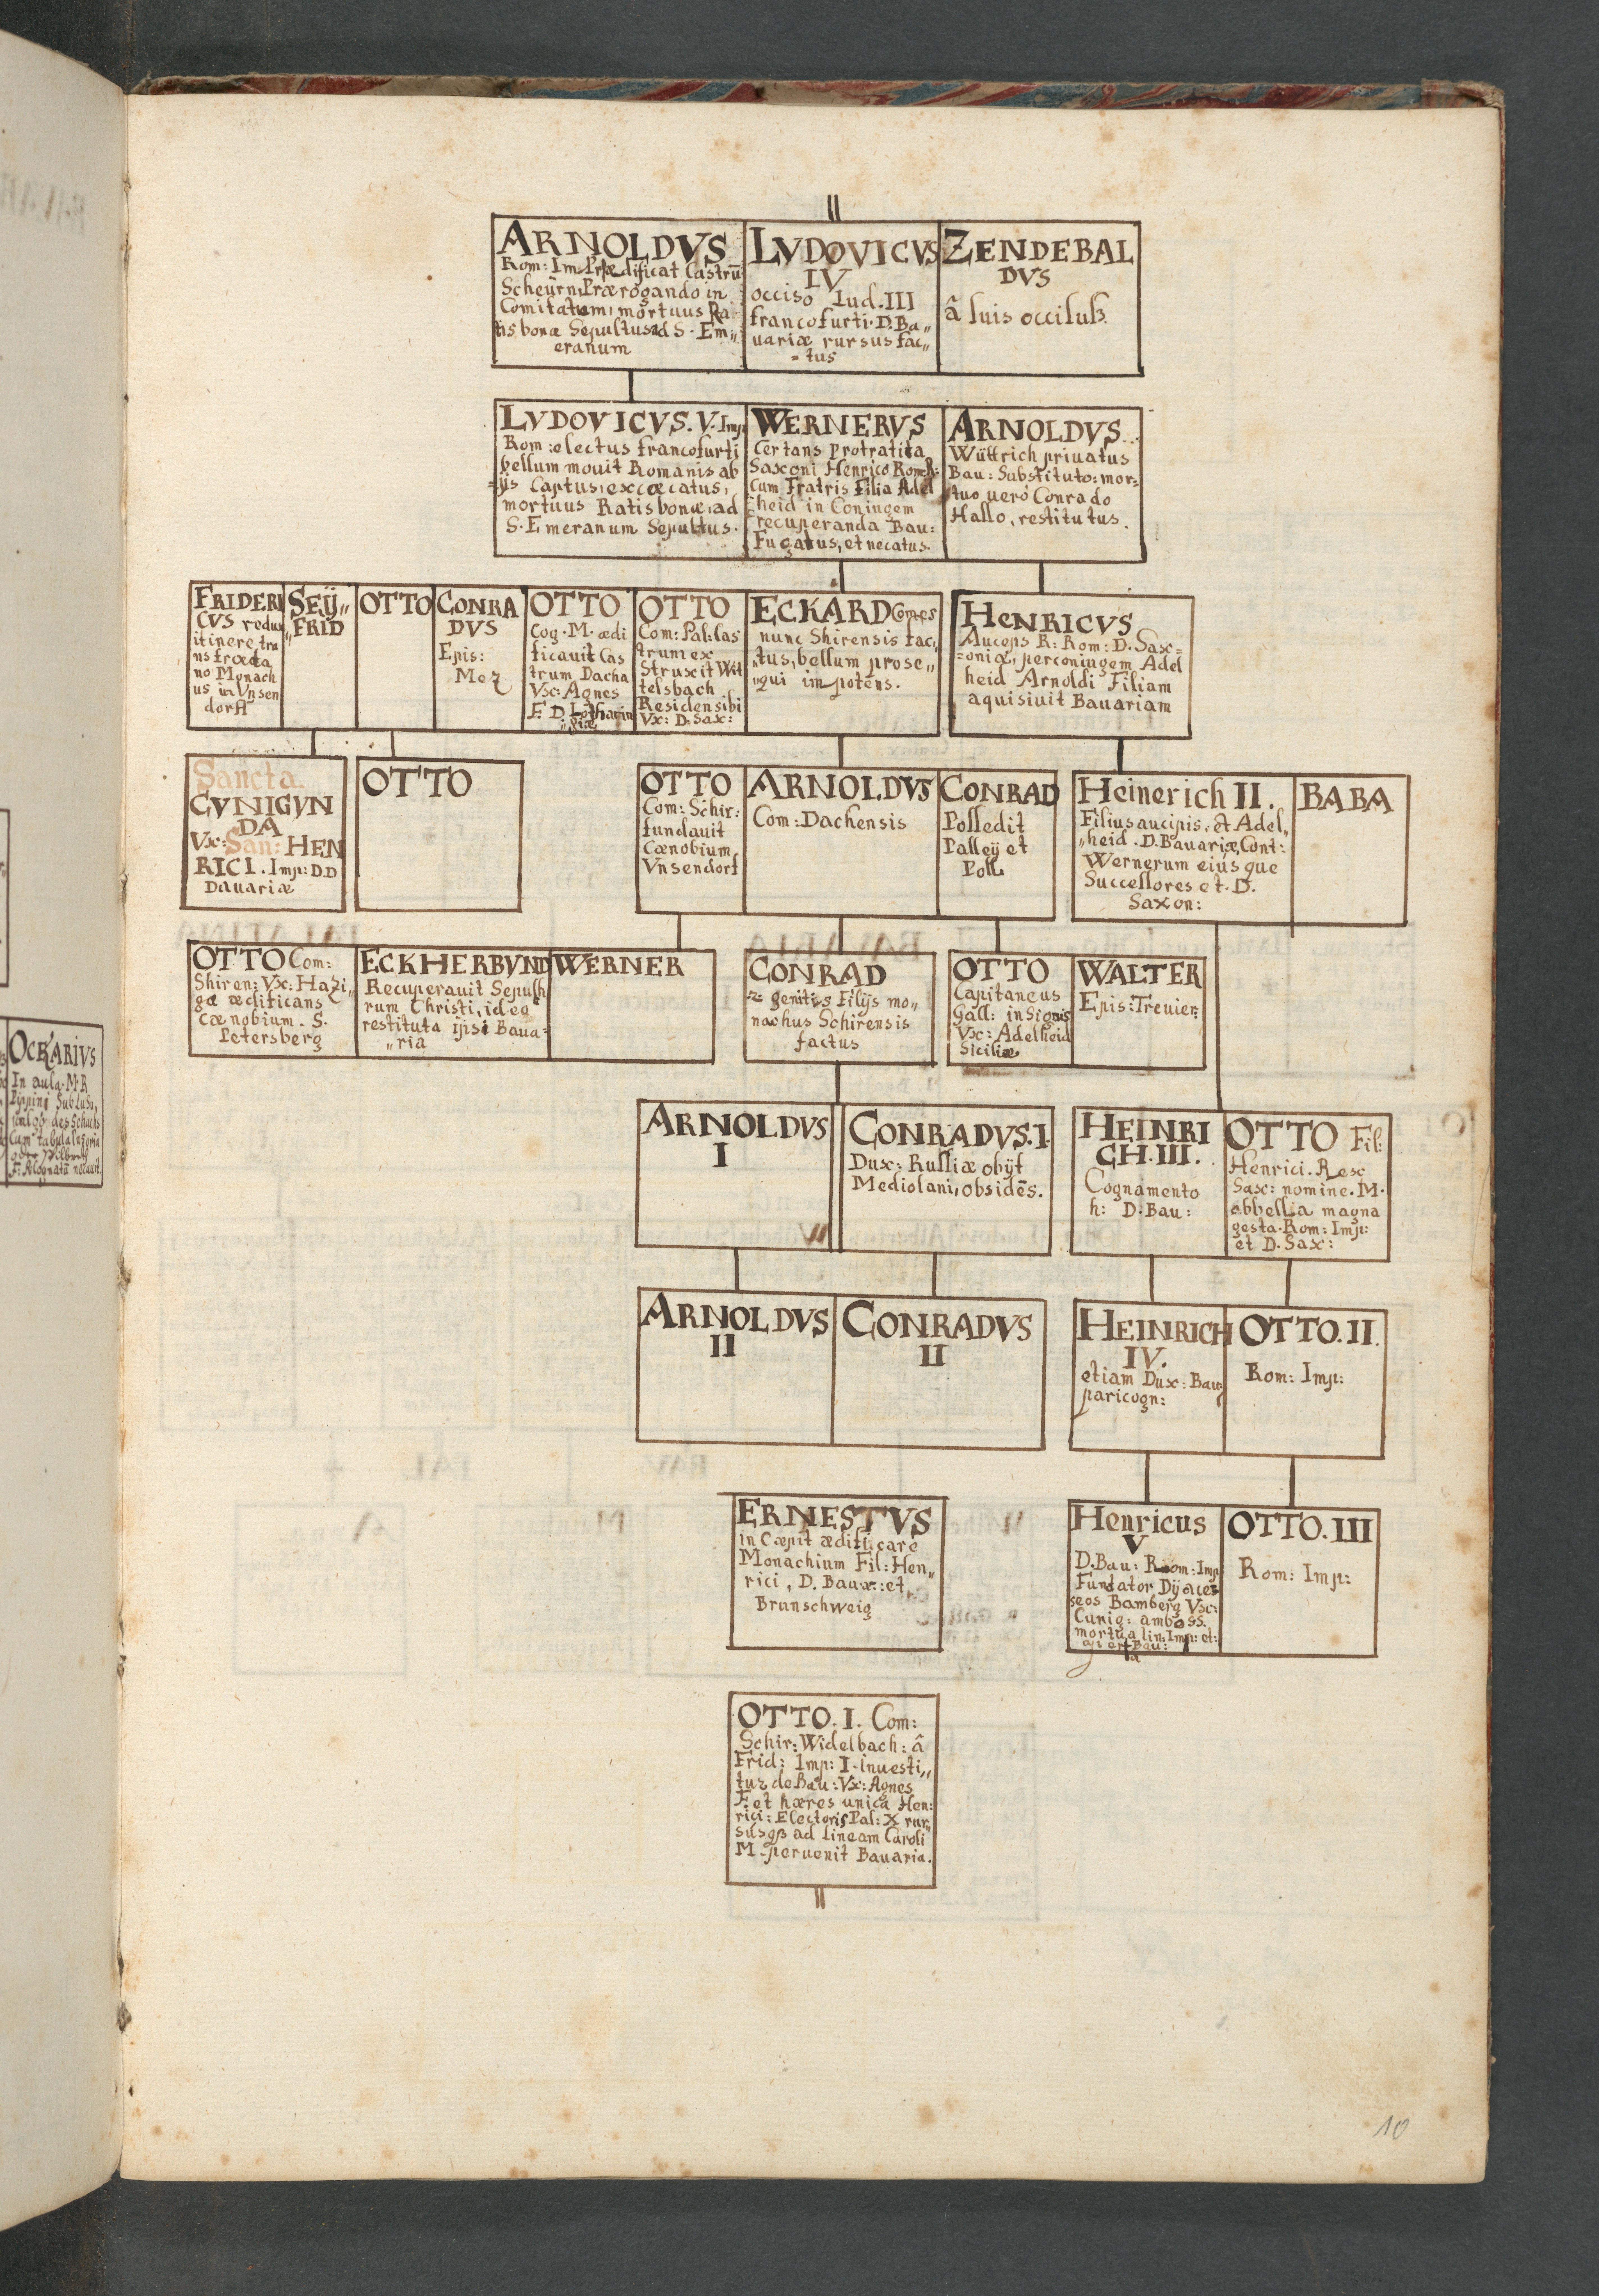 ARNOLDVS
Rom: Im Prædificat Castrū
Scheÿrn, Prærogando in
Comitatum, mortuus Ra
tis bonæ Sepultus ad S. Em„
eranum
LVDOVICVS
IV
occiso Lud. III
francofurti. D. Ba„
uariæ rursus fac„
= tus
ZENDEBAL
DVS
â suis occisuß.
LVDOVICVS. V. Imp.
Rom: electus francofurti
bellum mouit Romanis ab
=ijs Captus, excœcatus,
mortuus Ratisbonæ, ad
S. Emeranum Sepultus.
WERNERVS
Certans Protratita
Saxoni Henrico Rom R:
Cum Fratris Filia Adel
heid in Coniugem
recuperanda Bau:
Fugatus, et necatus.
ARNOLDVS
Wüttrich priuatus
Bau: Substituto: mor=
tuo uero Conrado
Hallo, restitutus.
FRIDERI
CVS redux
itinere tra
nsfracta
no Monach
us in Vnsen
dorff
SEŸ„
„FRID
OTTO
CONRA
DVS
Epis:
Mez
OTTO
Cog. M. ædi
ficauit Cas
trum Dacha
Vx: Agnes
F. D. Lotharin
„giæ
OTTO
Com: Pal: Cas
trum ex
Struxit Wit
telsbach
Residensibi
Vx: D. Sax:
ECKARD Comes
nunc Shirensis fac„
„tus, bellum prose„
„qui impotens.
HENRICVS
Auceps R: Rom: D. Sax=
=oniæ, perconiugem Adel
heid Arnoldi Filiam
aquisiuit Bauariam
Sancta
CVNIGVN
DA
Vx: San: HEN
RICI. Imp: D.D
Bauariæ
OTTO
OTTO
Com: Schir:
fundauit
Cænobium
Vnsendorf
ARNOLDVS
Com: Dachensis
CONRAD
Possedit
Palleÿ et
Poll
Heinerich II.
Filius aucipis, et Adel„
„heid. D. Bauariæ, Cont:
Wernerum eius que
Successores et. D.
Saxon:
BABA
OTTO Com:
Shiren: Vx: Hazi„
gæ ædificans
Cænobium. S.
Petersberg
ECKHERBVND
Recuperauit Sepulh
rum Christi, id eo
restituta ipsi Baua=
„ria
WERNER
CONRAD
2 genitis Filijs mo„
nachus Schirensis
factus
OTTO
Capitaneus
Gall: in Signis
Vx: Adelheid
Siciliæ
WALTER
Epis: Treuier:
ARNOLDVS
I
CONRADVS. I
Dux: Russiæ obijt
Mediolani, obsidēs.
HEINRI
CH. III.
Cognamento
h: D. Bau:
OTTO Fil:
Henrici. Rex
Sax: nomine. M.
abbellia magna
gesta. Rom: Imp:
et D. Sax:
ARNOLDVS
II
CONRADVS
II
HEINRICH
IV.
etiam Dux: Bau:
paricogn:
OTTO. II.
Rom: Imp:
ERNESTVS
in Cæpit ædificare
Monachium Fil: Hen„
rici, D. Baux: et
Brunschweig
Henricus
V
D. Bau: Rom: Imp
Fundator Dÿoce=
seos Bamberg Vx:
Cunig: amboss.
mortua lin: Imp: et:
OTTO. III
Rom: Imp:
OTTO. I. Com:
Schir: Widelbach: â
Frid: Imp: I. inuesti„
tur de Bau: Vx: Agnes
F. et hæres unica Hen:
rici: Electoris Pal: X rur„
susqß ad lineam Caroli
M. peruenit Bauaria.
10
OCKARIVS
In aula. M. R